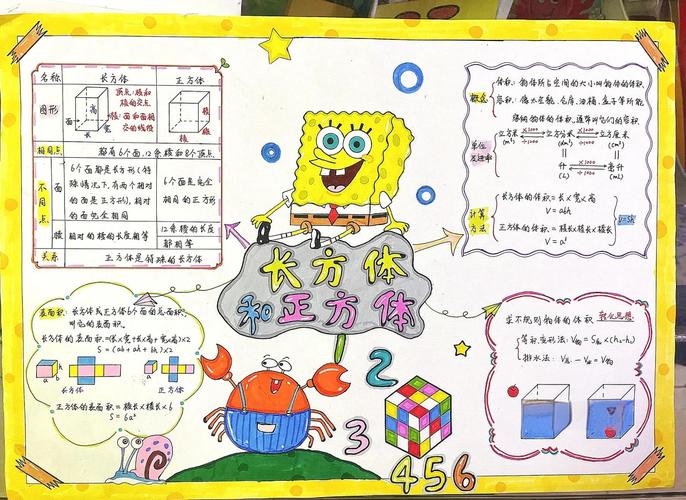 名称 长方体 正方体
图形
顶点:棱和
棱的交点
棱:面和面相
交的线段
面
高
宽
长
棱
棱
棱
相同点 都有6个面,12条棱和8个顶点
不同点
面
6个面都是长方形(特
殊情况下,有两个相对
的面是正方形),相对
的面完全相同
6个面是完全
相同的正方形
棱 相对的棱的长度相等
12条棱的长度
都相等
关系 正方体是特殊的长方体
长方体
和正方体
概念
体积:物体所占空间的大小叫物体的体积
容积:像太空舱、仓库、油箱、盒子等所能
容纳物体的体积,通常叫它们的容积
单位
及进率
立方米 ×1000 ÷1000 立方分米 ×1000 ÷1000 立方厘米
(m³) (dm³) (cm³)
升 ×1000 ÷1000 毫升
(L) (mL)
计算
方法
长方体的体积=长×宽×高
V=abh
正方体的体积=棱长×棱长×棱长
V=a³
V=Sh
表面积:长方体或正方体6个面的总面积,
叫它的表面积。
长方体的表面积=(长×宽+长×高+宽×高)×2
S=(ab+ah+bh)×2
a
b
h
长方体
a
正方体
正方体的表面积=棱长×棱长×6
S=6a²
求不规则物体的体积 转化思想
等积变形法:V物=S底×(h₂-h₁)
排水法:
2
3
456